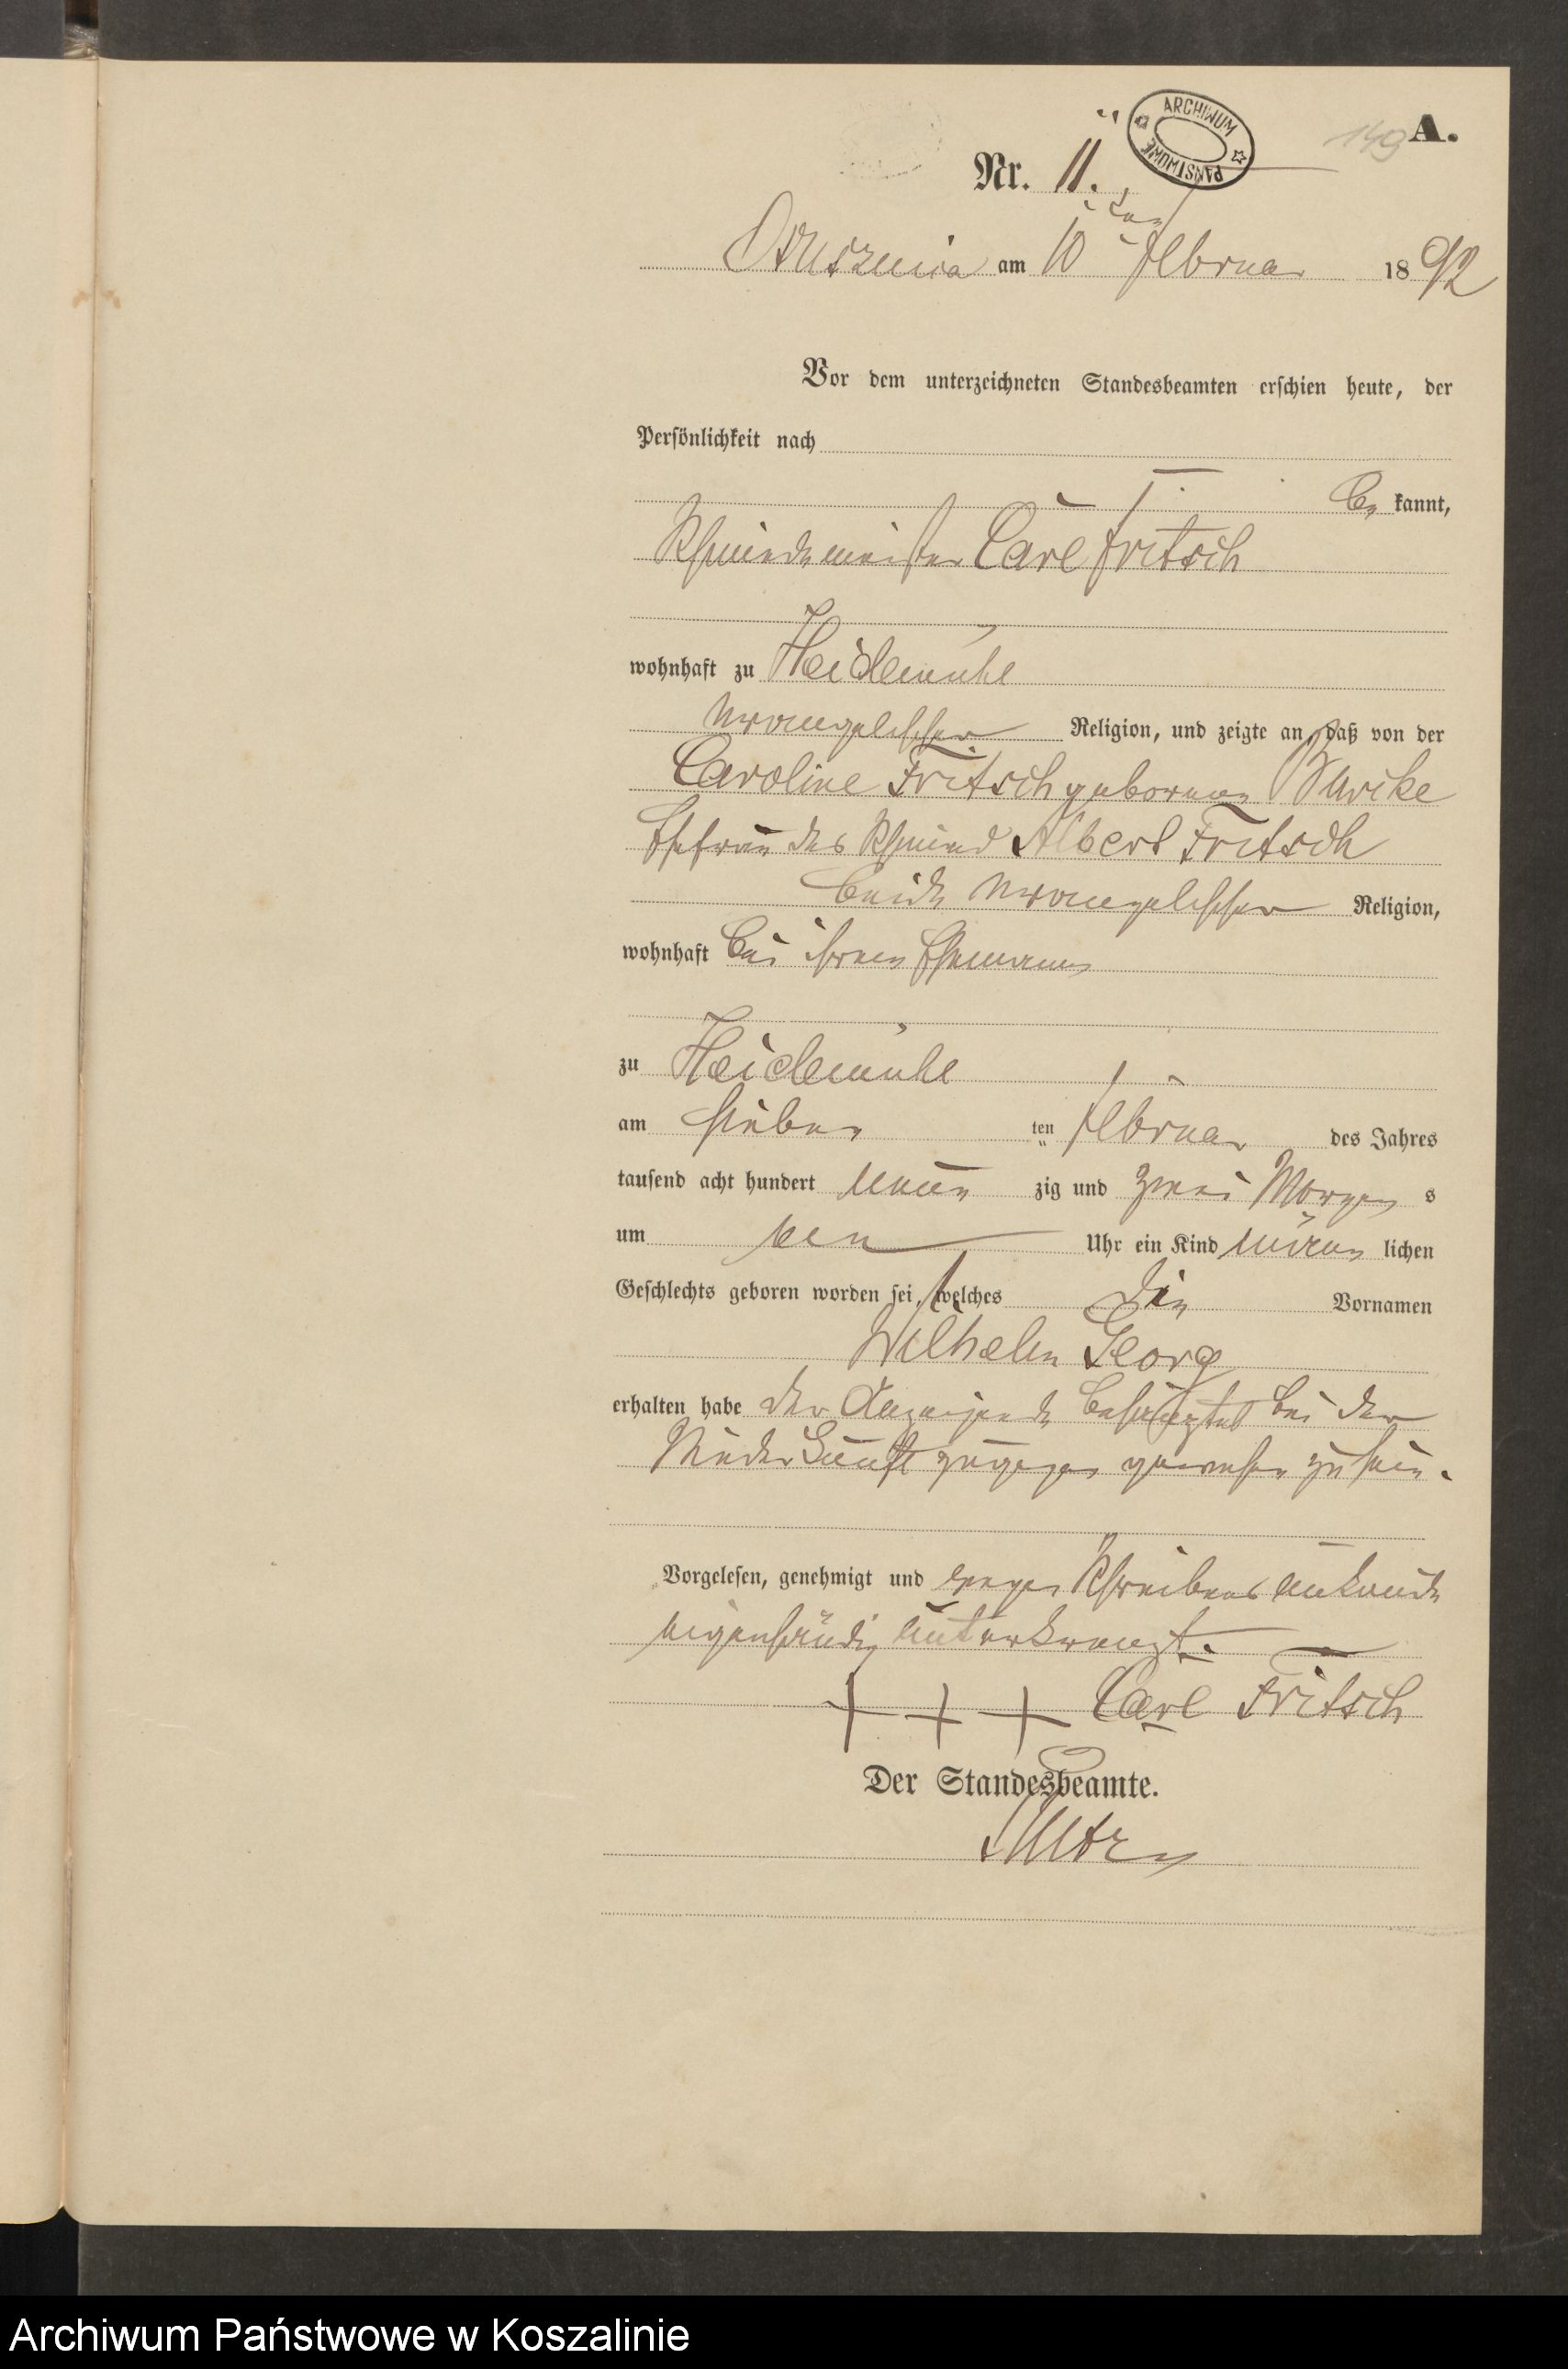 A.
149
ARCHIWUM PAŃSTWOWE
Nr. 11.
am 10ten Februar 1892
Vor dem unterzeichneten Standesbeamten erschien heute, der
Persönlichkeit nach
be kannt,
Schmiedemeister Carl Fritsch
wohnhaft zu Heidemühl
evangelischer Religion, und zeigte an, daß von der
Caroline Fritsch geborenen
Ehefrau des Schmied Albert Fritsch
beide evangelischer Religion,
wohnhaft bei ihrem Ehemann
zu Heidemühl
am sieben ten Februar des Jahres
tausend acht hundert neun zig und zwei Morgens
um Uhr ein Kind männ lichen
Geschlechts geboren worden sei, welches die Vornamen
Wilhelm Georg
erhalten habe der Anzeigende bei der
Niederkunft zugegen gewesen zu sein.
Vorgelesen, genehmigt und wegen Schreibens unkunde
eigenhändig unterkreuzt.
+ + + Carl Fritsch
Der Standesbeamte.
Archiwum Państwowe w Koszalinie